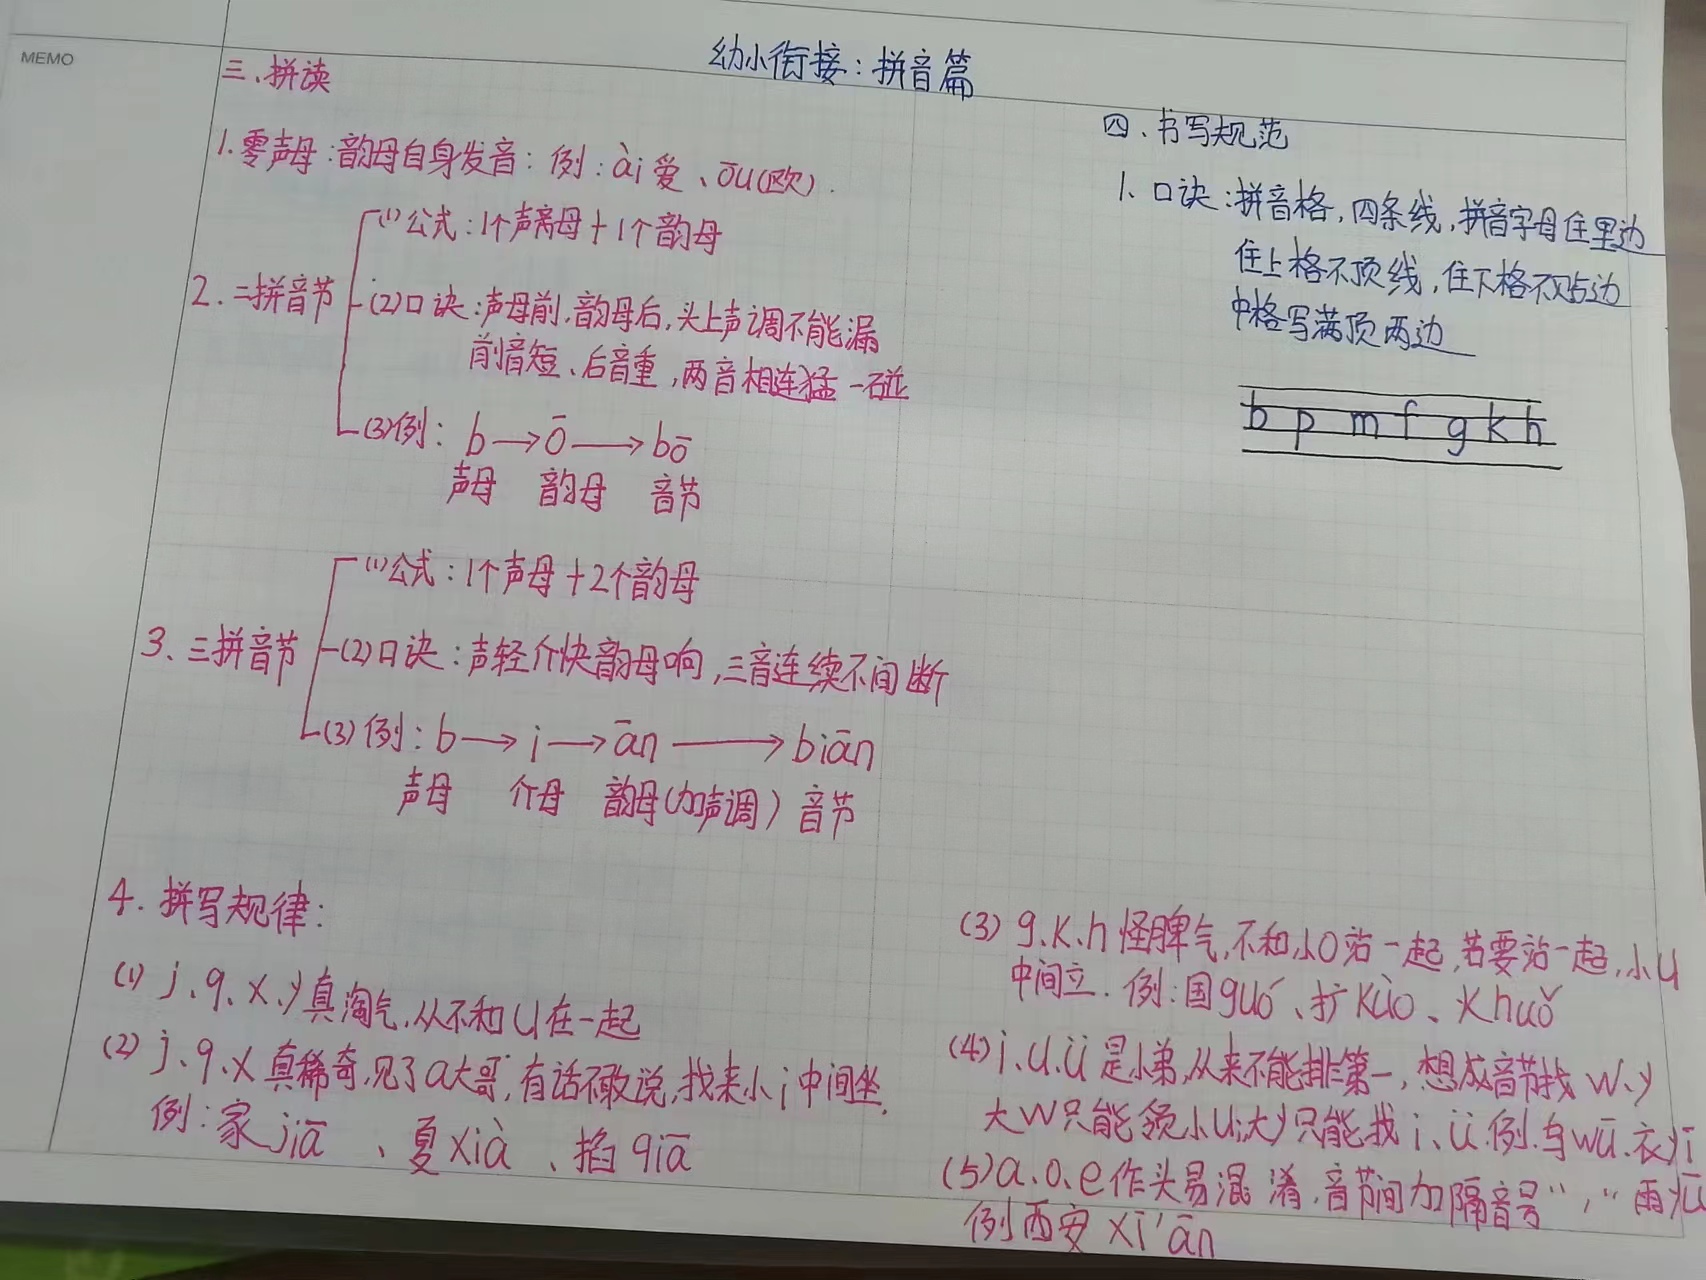 MEMO
幼小衔接：拼音篇
三、拼读
1. 零声母：韵母自身发音：例：ài 爱、ōu(欧).
2. 二拼音节
(1) 公式：1个声母+1个韵母
(2) 口诀：声母前，韵母后，头上声调不能漏
前音短、后音重，两音相连猛一碰
(3) 例：b→ō→bō
声母 韵母 音节
3、三拼音节
(1) 公式：1个声母+2个韵母
(2) 口诀：声轻介快韵母响，三音连续不间断
(3) 例：b→i→ān→biān
声母 介母 韵母(加声调) 音节
4. 拼写规律：
(1) j、q、x、y真淘气，从不和u在一起
(2) j、q、x真稀奇，见了a大哥，有话不敢说，找来小i中间坐.
例：家jiā、夏xià、掐qiā
(3) g、k、h怪脾气，不和小o站一起，若要站一起，小u
中间立. 例：国guó、扩kùo、火huǒ
(4) i、u、ü是小弟，从来不能排第一，想成音节找w、y
大w只能领小u；大y只能找i、ü.例.乌wū、衣yī
(5) a、o、e作头易混淆，音节间加隔音号“，“ 雨yū
例西安xī'ān
四、书写规范
1. 口诀：拼音格，四条线，拼音字母住里边
住上格不顶线，住下格不贴边
中格写满顶两边
b p m f g k h